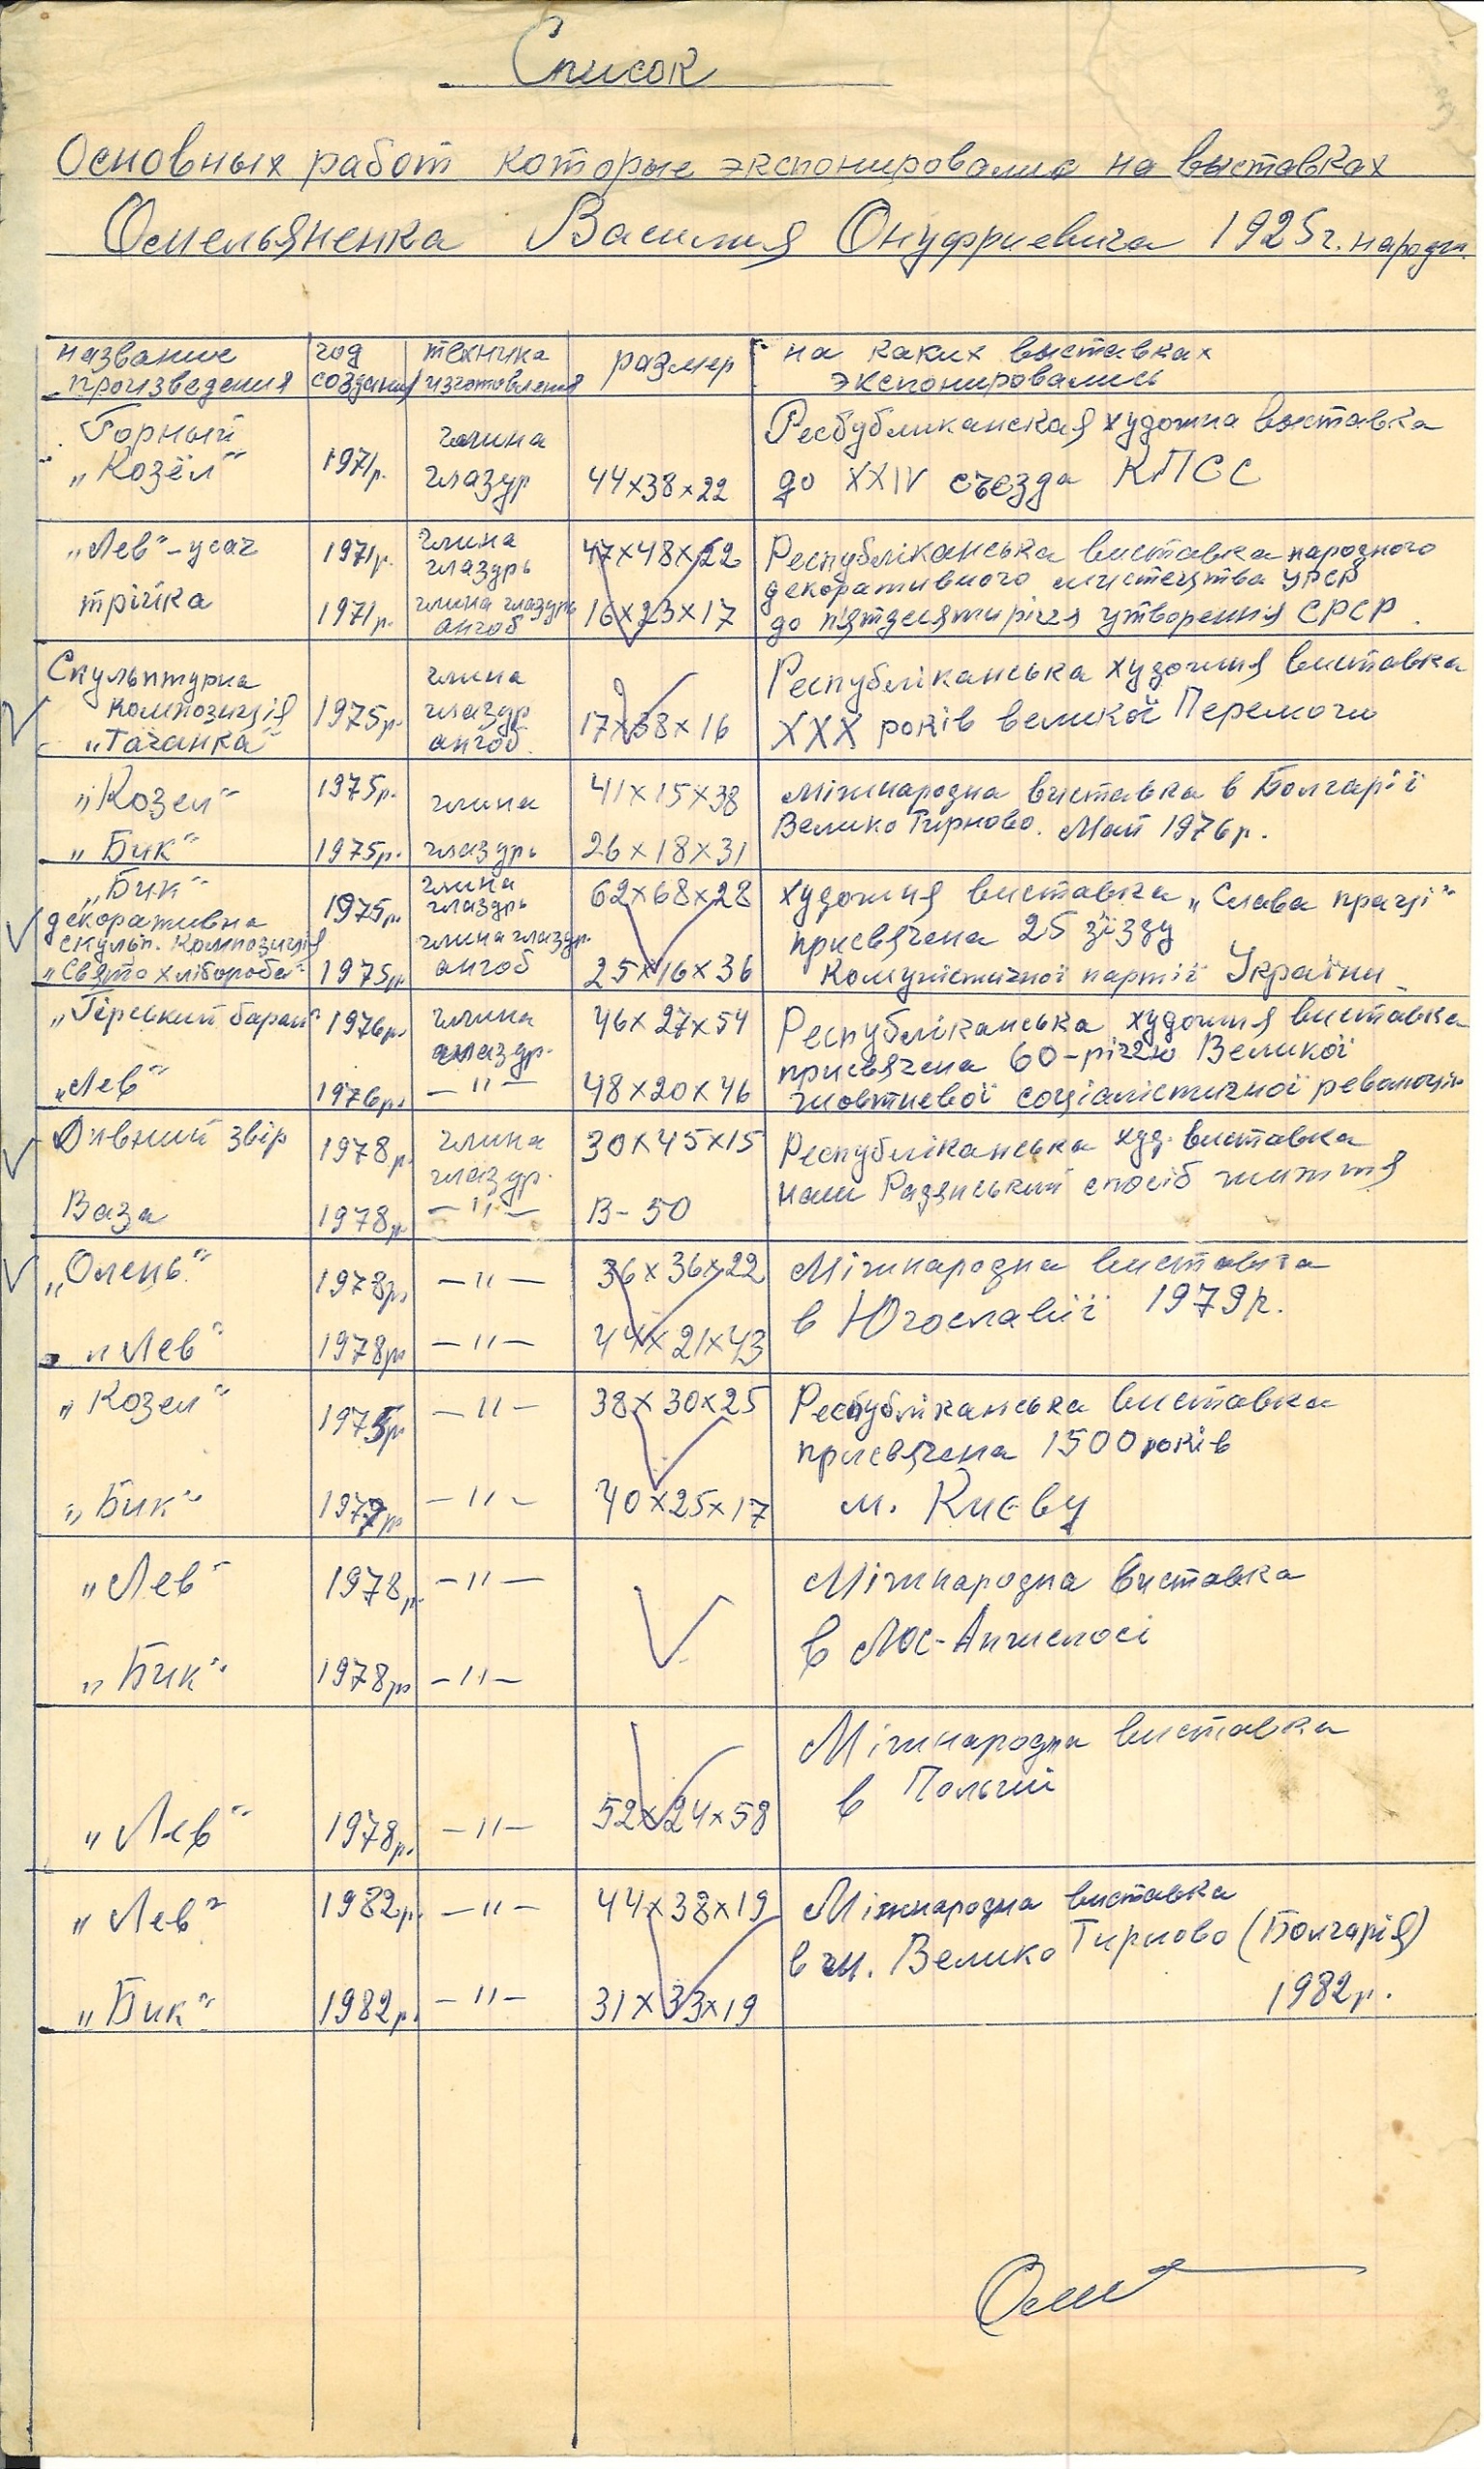 Список
Основных работ которые экспонировались на выставках
Омельяненка Василия Онуфриевича 1925г. народж.
название произведения
год создания
техника изготовления
размер
на каких выставках экспонировались
Горный
„Козёл“ 1971р.
глина
глазур 44х38х22
Республиканская художна выставка
до XXIV съезда КПСС
„Лев“-усач 1971р. глина глаздрь 47х48х22
трійка 1971р. глина глаздрь ангоб 16х23х17
Республіканська виставка народного
декоративного мистецтва УРСР
до пятдесятиріччя утворення СРСР.
Скульптурна
композиція
„Тачанка“ 1975р.
глина
глаздр
ангоб. 17х38х16
Республіканська художня виставка
XXX років великої Перемоги
„Козел“ 1975р. глина 41х15х38
„Бик“ 1975р. глаздрь 26х18х31
Міжнародна виставка в Болгарії
Велико Тирново. Май 1976р.
„Бик“ 1975р. глина глаздрь 62х68х28
декоративна
скульп. композиція
„Свято хлібороба“ 1975р. глина глаздр. ангоб 25х16х36
художня виставка „Слава праці“
присвячена 25 зїзду
Комуністичної партії України
„Гірський баран“ 1976р. глина глаздр. 46х27х54
„Лев“ 1976р. –"– 48х20х46
Республіканська художня виставка
присвячена 60-річчю Великої
жовтневої соціалістичної революціи
Дивний звір 1978р. глина глаздр. 30х45х15
Ваза 1978р. –"– В-50
Республіканська худ. виставка
наш Радянський спосіб життя
„Олень“ 1978р. –"– 36х36х22
„Лев“ 1978р. –"– 44х21х43
Міжнародна виставка
в Югославії 1979р.
„Козел“ –"– 38х30х25
„Бик“ –"– 40х25х17
Республіканська виставка
присвячена 1500 років
м. Києву
„Лев“ 1978р. –"–
„Бик“ 1978р. –"–
Міжнародна виставка
в Лос-Анжелосі
„Лев“ 1978р. –"– 52х24х58
Міжнародна виставка
в Польши
„Лев“ 1982р. –"– 44х38х19
„Бик“ 1982р. –"– 31х33х19
Міжнародна виставка
в м. Велико Тирново (Болгарія)
1982р.